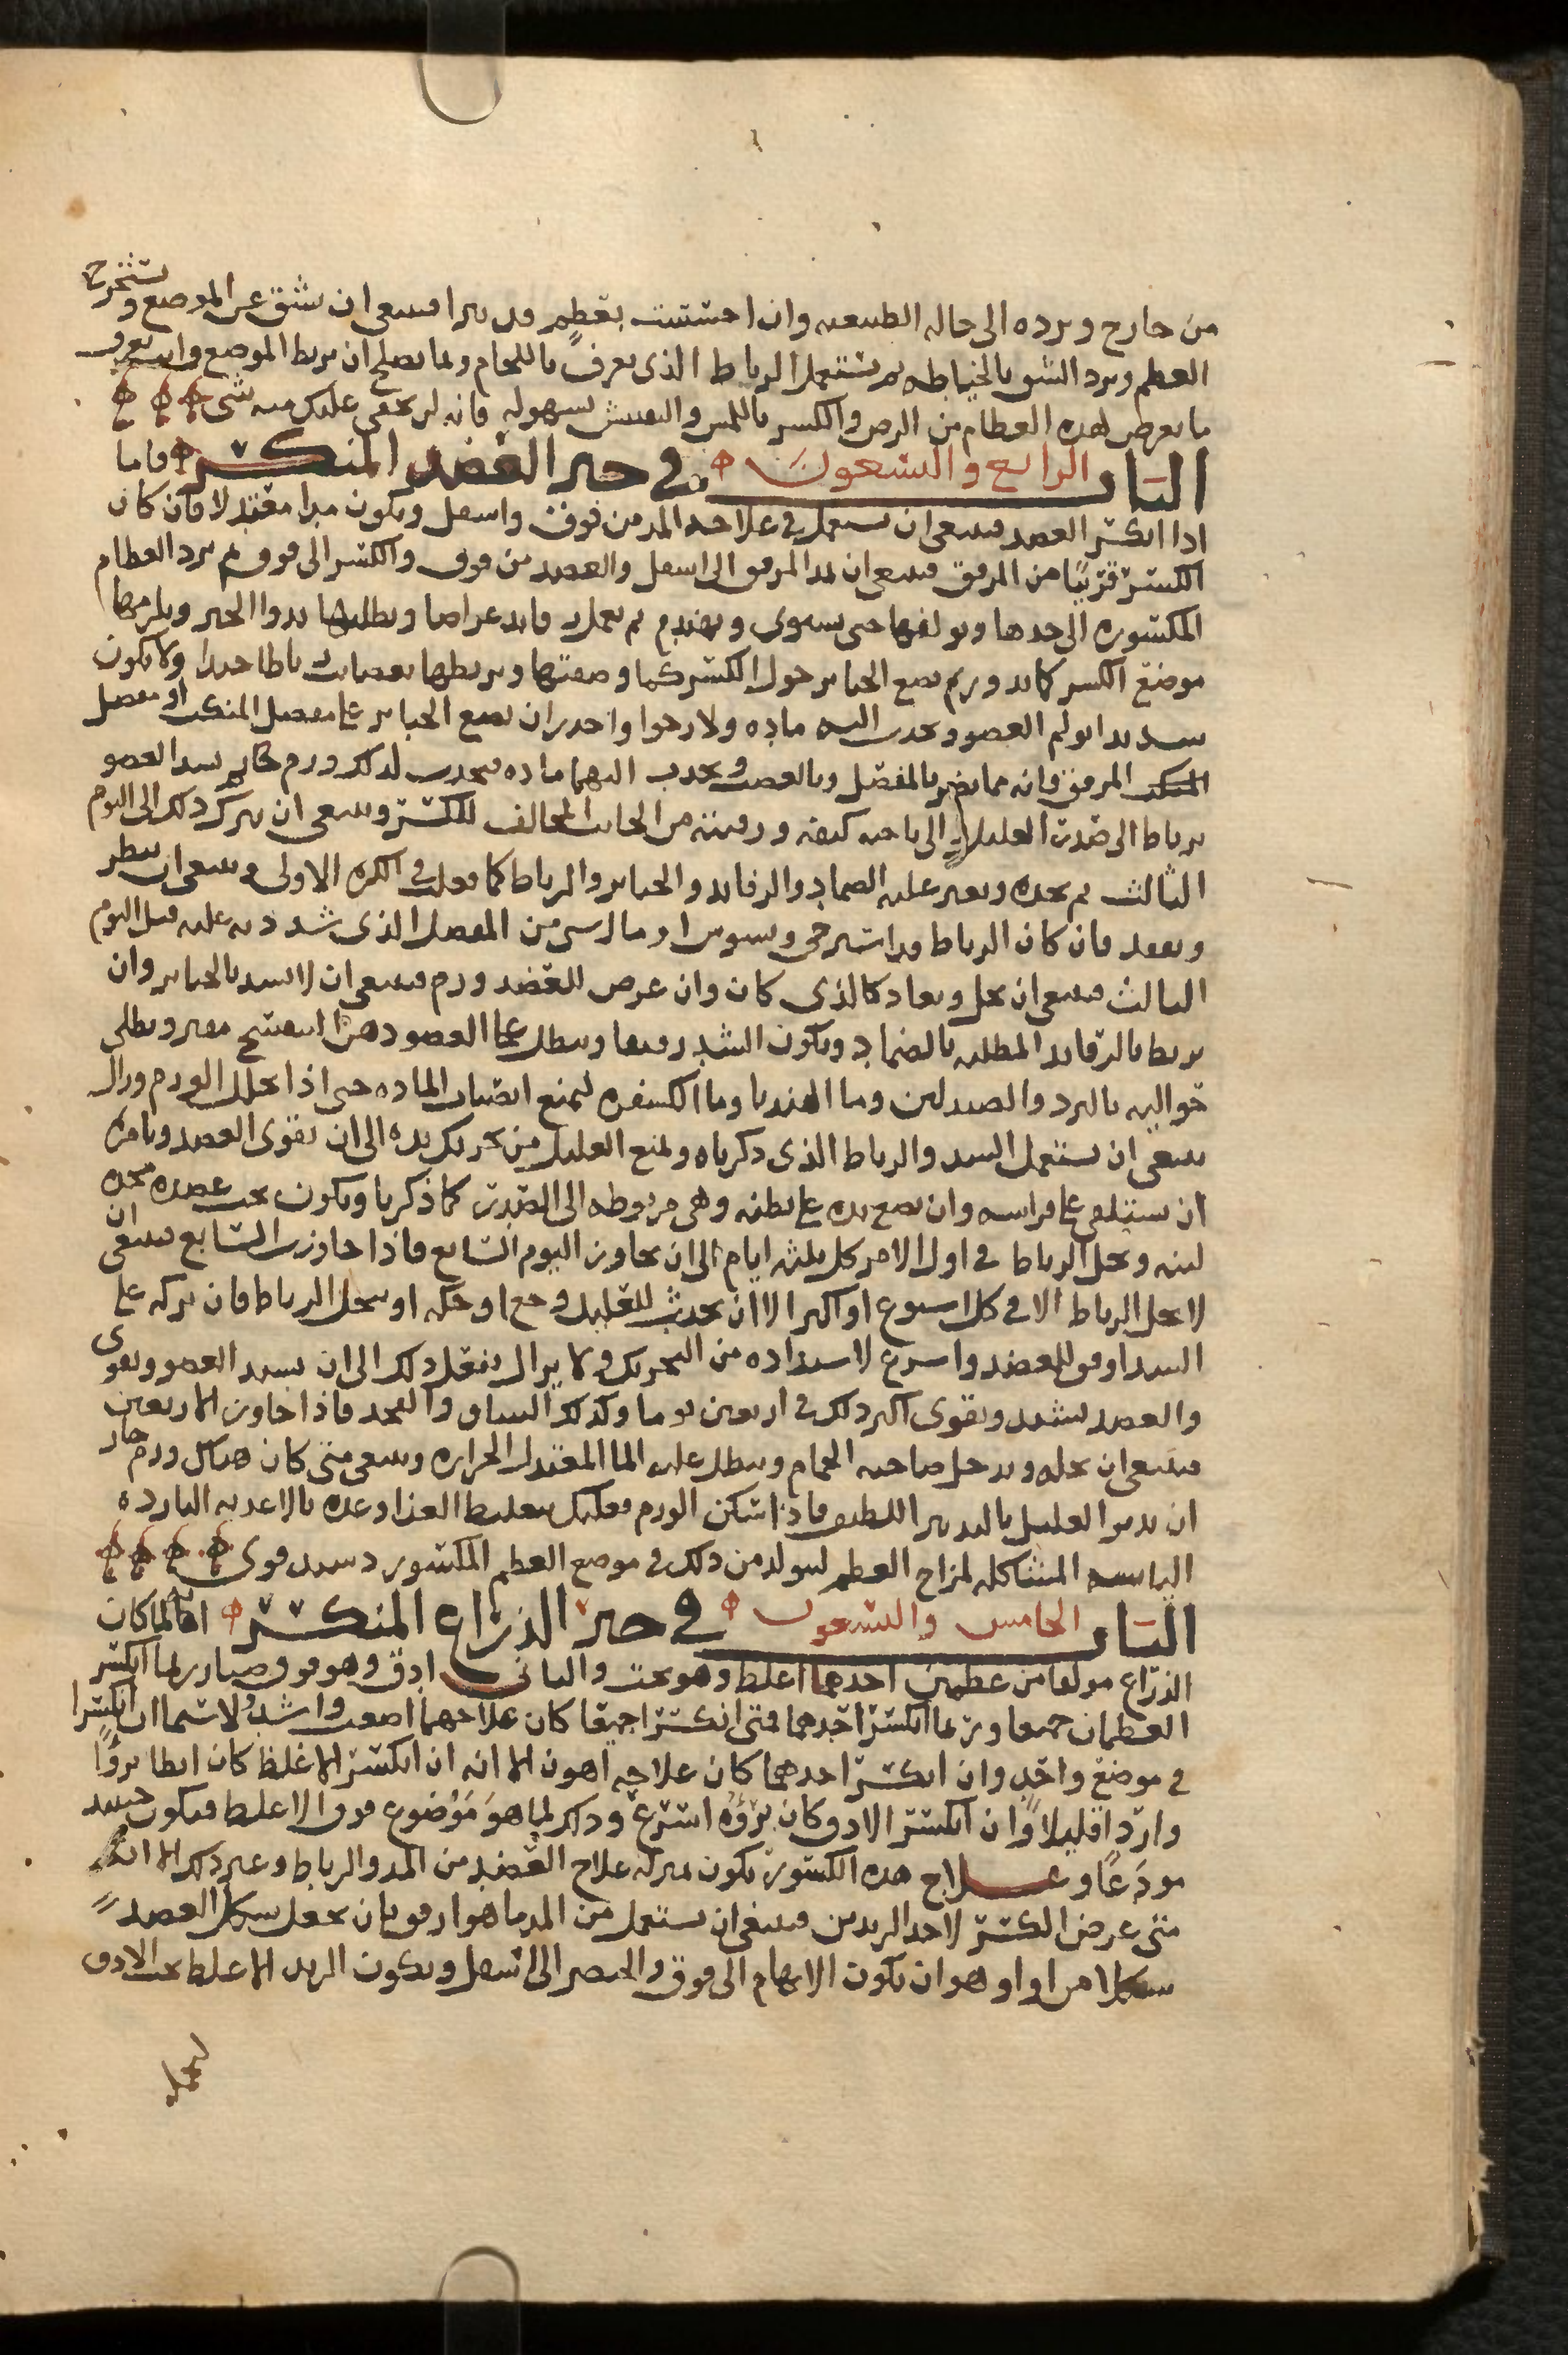 من خارج ويرده الى حاله الطبيعيه وان احسست بعظم قد تبرا فينبغي ان تشق عن الموضع وتستخرج
العظم وترد الشق بالخياطه ثم تستعمل الرباط الذي يعرف باللحام ولما يصلح ان يربط الموضع وانت تعرف
ما يعرض لهذه العظام من الرض والكسر باللمس والتفتيش بسهوله فانه لن يخفى عليك منه شي
الباب الرابع والتسعون في جبر العضد المنكسر فاما
اذا انكسر العضد فينبغي ان يستعمل في علاجه المد من فوق واسفل ويكون مدا معتدلا فان كان
الكسر قريبا من المرفق فينبغي ان يمد المرفق الى اسفل والعضد من فوق والكسر الى فوق ثم ترد العظام
المكسوره الى حدها وتولفها حتى تستوي وتهندم ثم تعمل رفايد عراضا وتطليها بدوا الجبر وتلزمها
موضع الكسر كما يدور ثم تضع الجباير حول الكسر كما وصفتها وتربطها بعصايب رباطا جيدا ولا يكون
شديدا يولم العضو ويجذب اليه ماده ولا رخوا واحذر ان تضع الجباير على مفصل المنكب او مفصل
المرفق فانه مما يضر بالمفصل وبالعصب ويجذب اليهما ماده فيحدث لذلك ورم حار ثم شد العضو
برباط الى صدر العليل الى ناحيه كتفه ورقبته من الجانب المخالف للكسر وينبغي ان يترك ذلك الى اليوم
الثالث ثم تحله وتغير عليه الضماد والرفايد والجباير والرباط كما فعلت في الكره الاولى وينبغي ان تنظر
وتفقد فان كان الرباط قد استرخى وتشوش او مال شي من المفصل الذي شددته عليه قبل اليوم
الثالث فينبغي ان يحل ويعاد كالذي كان وان عرض للعضد ورم فينبغي ان لا تشد بالجباير وان
تربط بالرفايد المطليه بالضماد ويكون الشد رفيقا وتنطل على العضو دهن البنفسج مفتر وتطلي
حواليه بالبرد والصندلين وما الهندبا وما الكسفره ليمنع انصباب الماده حتى اذا تحلل الورم وزال
ينبغي ان تستعمل الشد والرباط الذي ذكرناه وتمنع العليل من تحريك يده الى ان يقوى العضد وتامره
ان يستلقي على فراشه وان يضع يده على بطنه وهي مربوطه الى الصدر كما ذكرنا ويكون تحت عضده مخده
لينه وتحل الرباط في اول الامر كل ثلثه ايام الى ان تجاوز اليوم السابع فاذا جاوزت السابع فينبغي ان
لا تحل الرباط الا في كل اسبوع او اكثر الا ان يحدث للعليل وجع او حكه او ينحل الرباط فان تركه على
الشد اوفق للعضد واسرع لاشتداده من التحريك ولا يزال يفعل ذلك الى ان يشتد العضو ويقوى
والعضد يشتد ويقوى اكثر ذلك في اربعين يوما وكذلك الساق والفخذ فاذا جاوز الاربعين
فينبغي ان تحله ويدخل صاحبه الحمام وتنطل عليه الما المعتدل الحراره وينبغي متى كان هناك ورم حار
ان يدبر العليل بالتدبير اللطيف فاذا سكن الورم فعليك بتغليظ الغذا وغذه بالاغذيه البارده
اليابسه المشاكله لمزاج العظم ليتولد من ذلك في موضع العظم المكسور دشبد قوي
الباب الخامس والتسعون في جبر الذراع المنكسر اقول انه لما كان
الذراع مولفا من عظمين احدهما اغلظ وهو تحت والثاني ادق وهو فوق وصار ربما انكسر
العظمان جميعا وربما انكسر احدهما فمتى انكسرا جميعا كان علاجهما اصعب واشد ولا سيما ان انكسرا
في موضع واحد وان انكسر احدهما كان علاجه اهون الا انه ان انكسر الاغلظ كان ابطا بروًا
واردا قليلا وان انكسر الادق كان بروه اسرع وذلك لما هو موضوع فوق الاغلظ فيكون حينيذ
مودعا وعلاج هذه الكسور يكون بمنزله علاج العضد من المد والرباط وغير ذلك الا انه
متى عرض الكسر لاحد الزندين فينبغي ان يستعمل من المد ما هو ارفق بان يجعل شكل العضد
شكلا مزاوا وهو ان يكون الابهام الى فوق والخنصر الى اسفل ويكون الزند الاغلظ تحت الادق
ليحمل